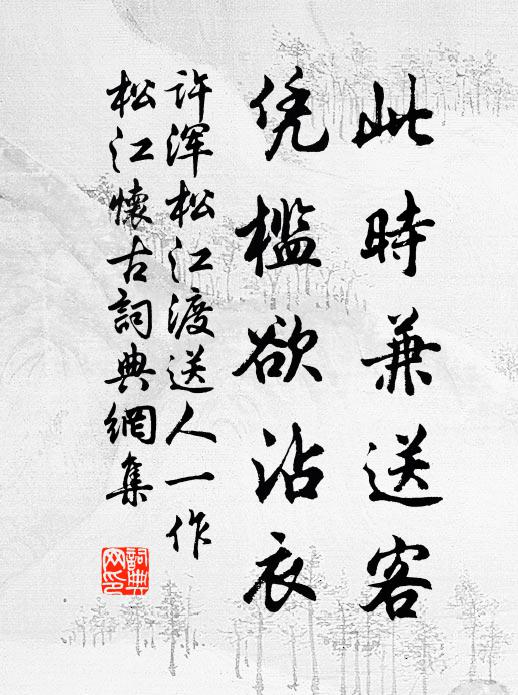 此時兼送客
凭檻欲沾衣
许渾松江渡送人一作
松江懷古詞典網集
詞典
网印